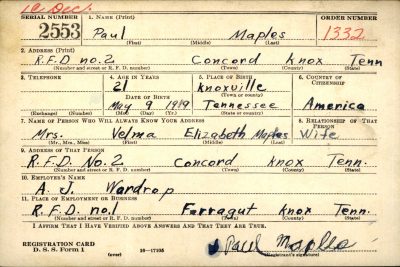 10 Dec.
SERIAL NUMBER 1. NAME (Print) ORDER NUMBER
2553 Paul Maples 1332
(First) (Middle) (Last)
2. ADDRESS (Print)
R.F.D no.2 Concord Knox Tenn
(Number and street or R. F. D. number) (Town) (County) (State)
3. TELEPHONE 4. AGE IN YEARS 5. PLACE OF BIRTH 6. COUNTRY OF CITIZENSHIP
21 Knoxville
DATE OF BIRTH (Town or county)
May 9 1919 Tennessee America
(Exchange) (Number) (Mo.) (Day) (Yr.) (State or country)
7. NAME OF PERSON WHO WILL ALWAYS KNOW YOUR ADDRESS 8. RELATIONSHIP OF THAT PERSON
Mrs. Velma Elizabeth Maples Wife
(Mr., Mrs., Miss) (First) (Middle) (Last)
9. ADDRESS OF THAT PERSON
R.F.D. No.2 Concord Knox Tenn.
(Number and street or R. F. D. number) (Town) (County) (State)
10. EMPLOYER'S NAME
A. J. Wardrop
11. PLACE OF EMPLOYMENT OR BUSINESS
R.F.D. no.1 Farragut Knox Tenn.
(Number and street or R. F. D. number) (Town) (County) (State)
I AFFIRM THAT I HAVE VERIFIED ABOVE ANSWERS AND THAT THEY ARE TRUE.
REGISTRATION CARD
D. S. S. Form 1 (over) 16—17105 Paul Maples
(Registrant's signature)